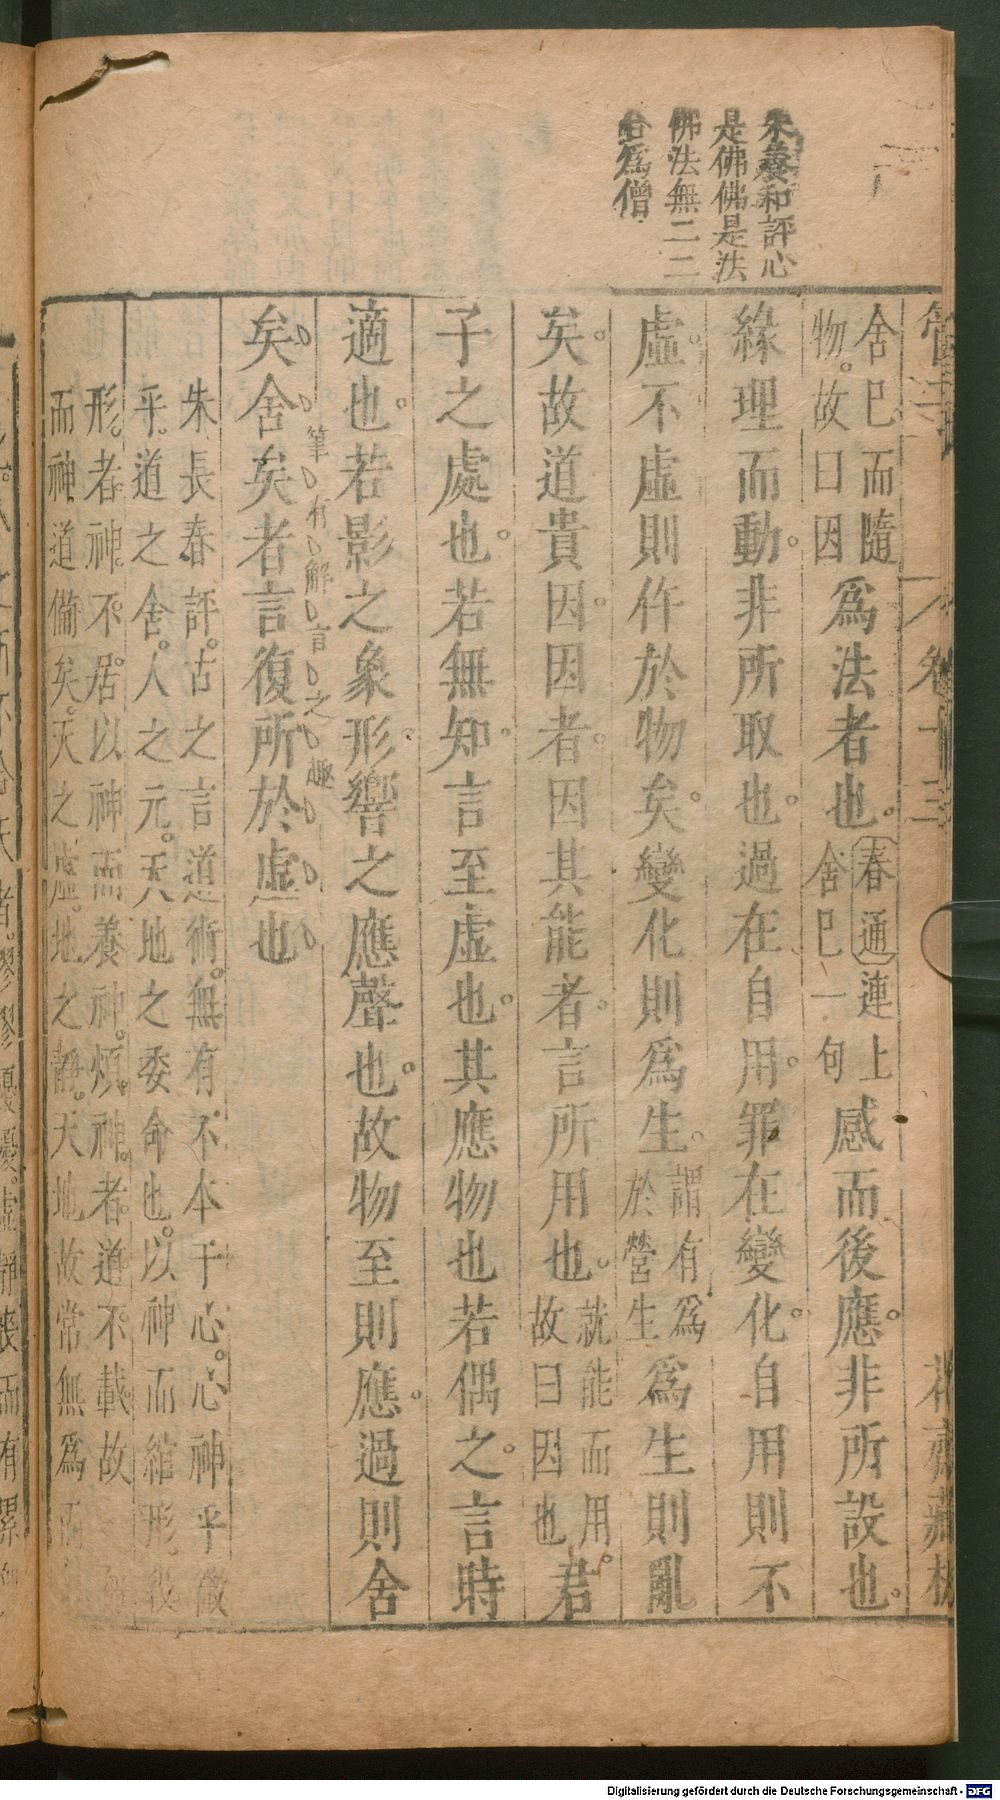 朱養和評心
是佛佛是法
佛法無二二
台爲僧
舍巳而隨
物。故曰因
爲法者也。
春通連上
舍巳一句
感而後應。非所設也。
緣理而動。非所取也。過在自用。罪在變化。自用則不
虛。不虛則仵於物矣。變化則爲生。
謂有爲
於營生
爲生則亂
矣。故道貴因。因者。因其能者。言所用也。
就能而用
故曰因也
君
子之處也。若無知。言至虛也。其應物也若偶之。言時
適也。若影之象形。響之應聲也。故物至則應。過則舍
筆有解言之趣
矣。舍矣者言復所於虛也
朱長春評。古之言道術。無有不本于心。心神乎
乎。道之舍。人之元。天地之委命也。以神而綰形
形。者。神。不居。以神而養神。煩。神。者。道。不載。故
而神道備矣。天之虛。地之靜。天地故常無爲而
卷十三
花齋藏板
Digitalisierung gefördert durch die Deutsche Forschungsgemeinschaft - DFG